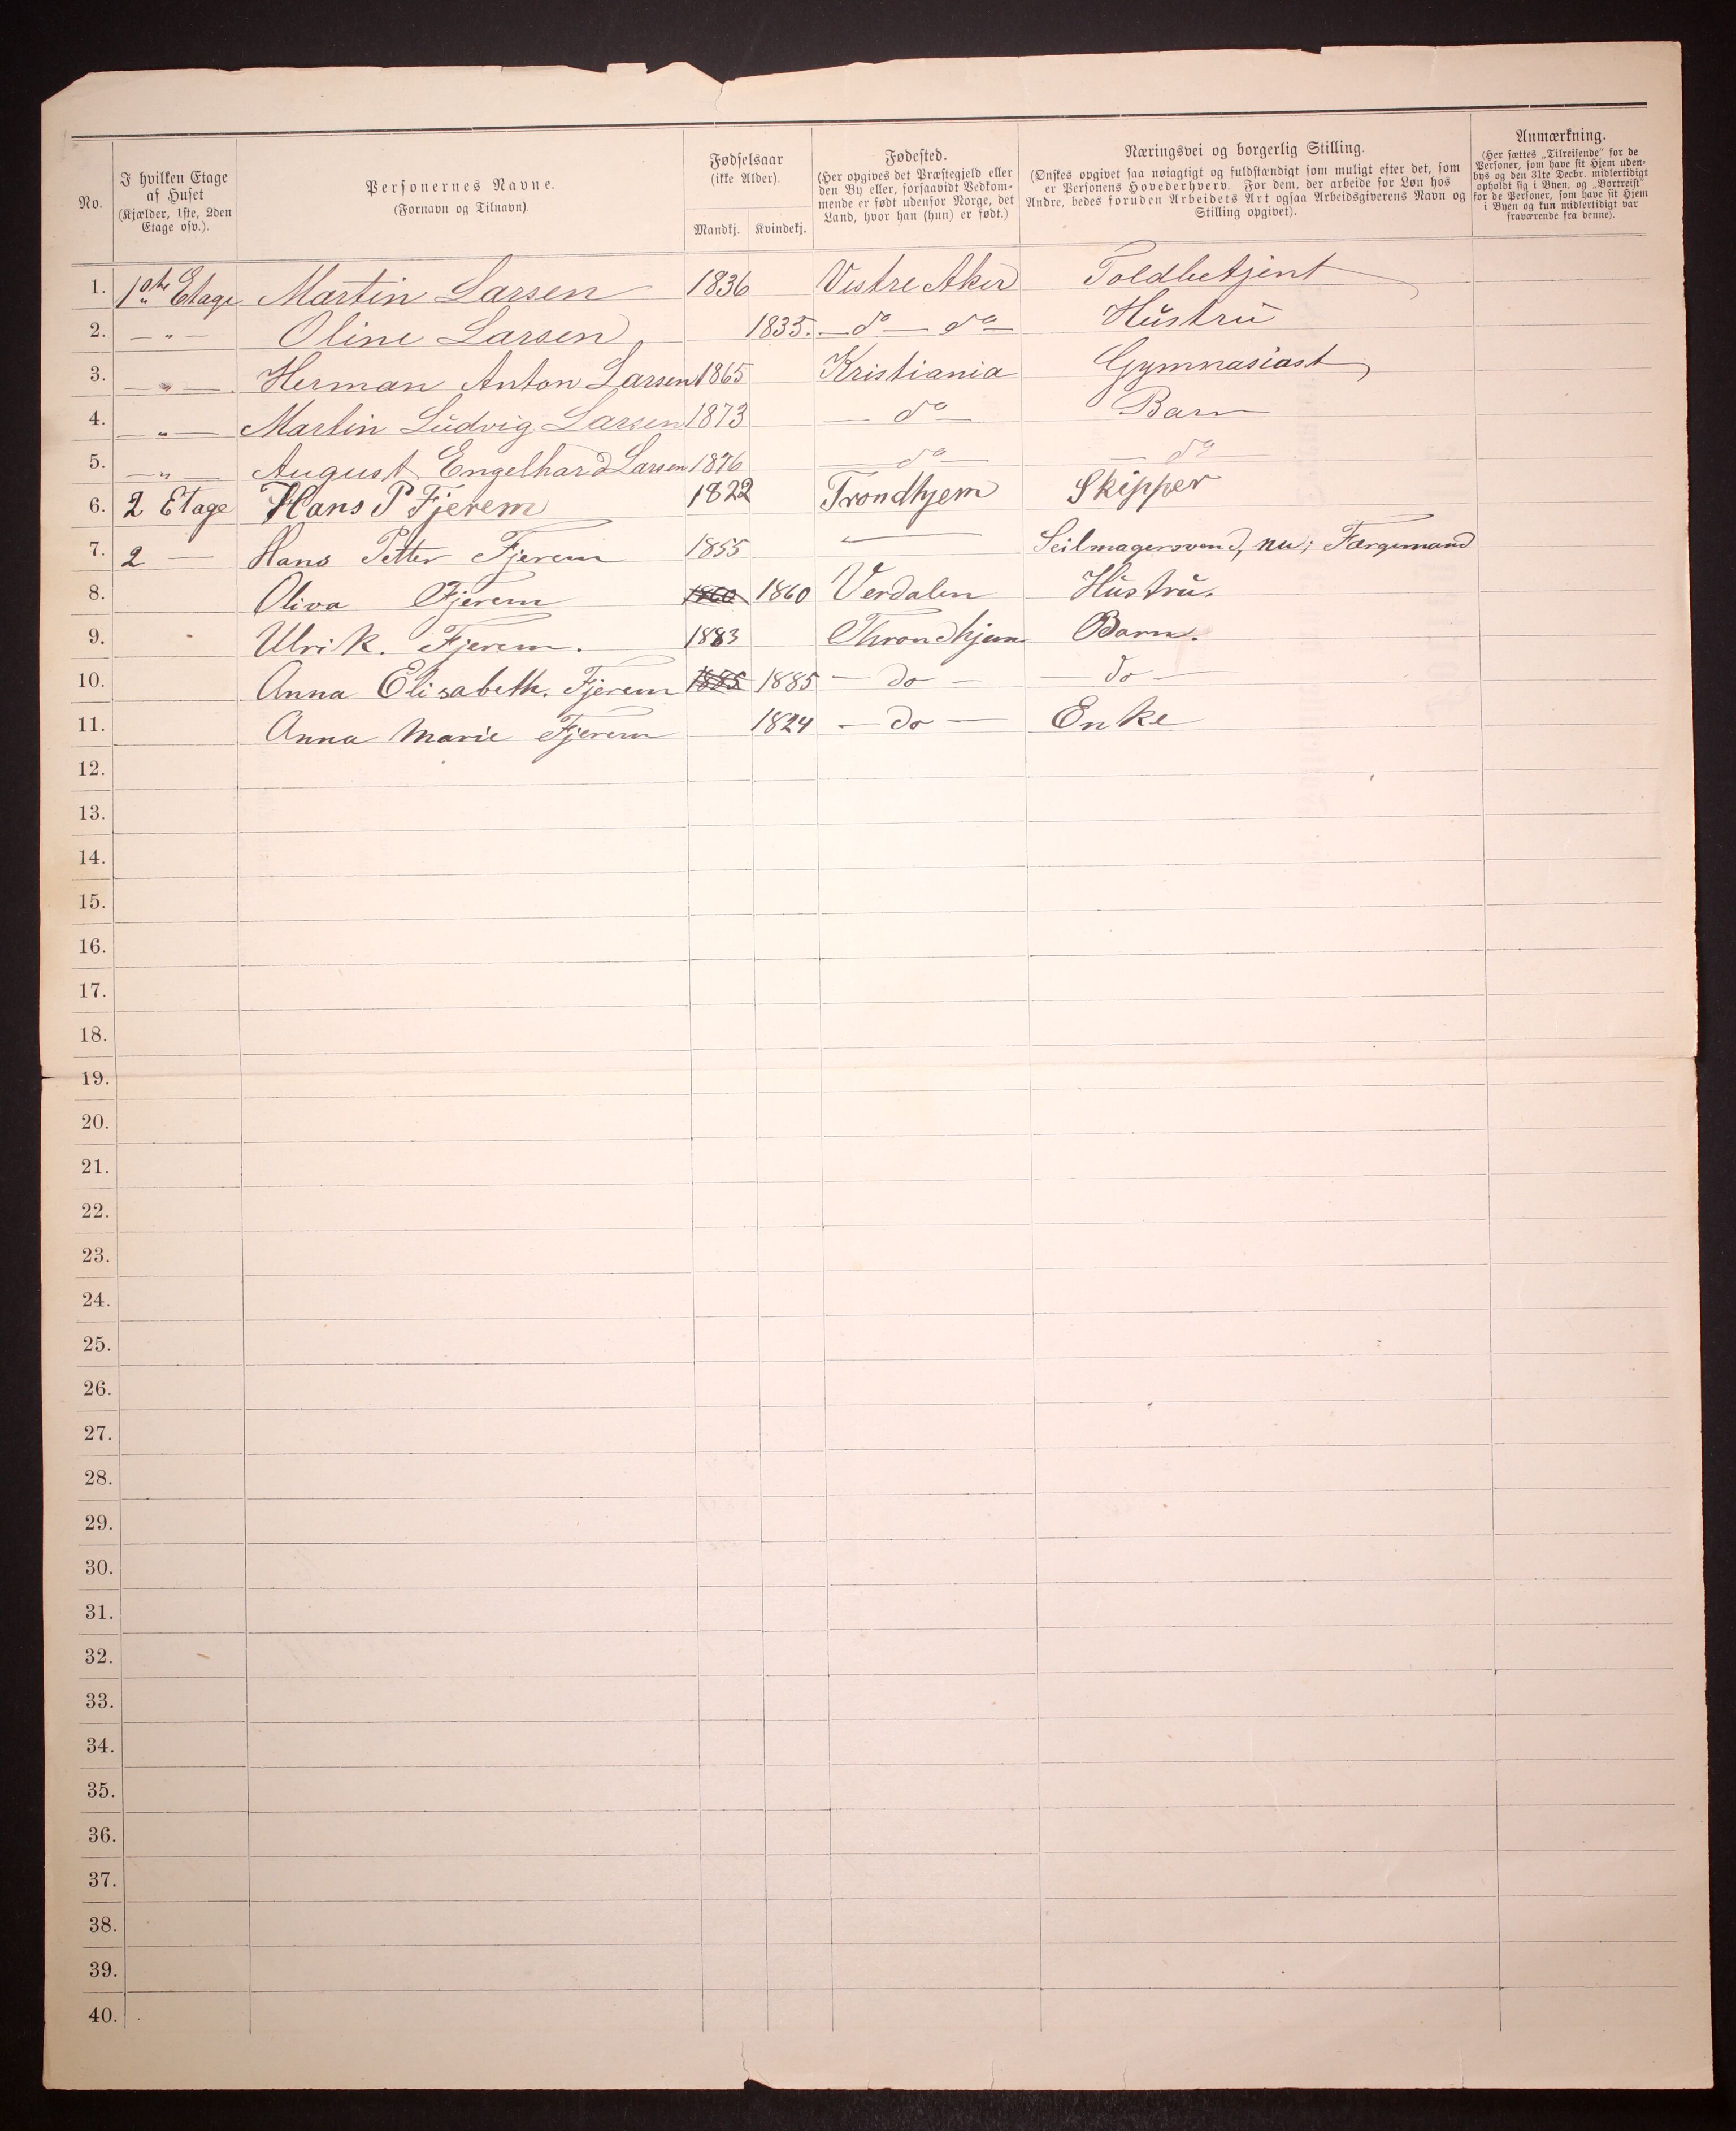 No.
I hvilken Etage
af Huset
(Kjælder, 1ste, 2den
Etage osv.).
Personernes Navne.
(Fornavn og Tilnavn).
Fødselsaar
(ikke Alder).
Mandkj. Kvindekj.
Fødested.
(Her opgives det Præstegjeld eller
den By eller, forsaavidt Vedkom-
mende er født udenfor Norge, det
Land, hvor han (hun) er født.)
Næringsvei og borgerlig Stilling.
(Ønskes opgivet saa nøiagtigt og fuldstændigt som muligt efter det, som
er Personens Hovederhverv. For dem, der arbeide for Løn hos
Andre, bedes foruden Arbeidets Art ogsaa Arbeidsgiverens Navn og
Stilling opgivet).
Anmærkning.
(Her sættes „Tilreisende" for de
Personer, som have sit Hjem uden-
bys og den 31te Decbr. midlertidigt
opholdt sig i Byen, og „Bortreist"
for de Personer, som have sit Hjem
i Byen og kun midlertidigt var
fraværende fra denne).
1. 1ste Etage Martin Larsen 1836 Vestre Aker Toldbetjent
2. — " — Oline Larsen 1835. — do — do — Hustru
3. — " — Herman Anton Larsen 1865 Kristiania Gymnasiast
4. — " — Martin Ludvig Larsen 1873 — do — Barn
5. — " — August Engelhard Larsen 1876 — do — — do —
6. 2 Etage Hans P Fjerem 1822 Trondhjem Skipper
7. 2 — Hans Petter Fjerem 1855 — Seilmagersvend, nu; Færgemand
8. Oliva Fjerem 1860 1860 Verdalen Hustru.
9. Ulrik. Fjerem. 1883 Throndhjem Barn.
10. Anna Elisabeth. Fjerem 1885 1885 — do — — do —
11. Anna Marie Fjerem 1824 — do — Enke
12.
13.
14.
15.
16.
17.
18.
19.
20.
21.
22.
23.
24.
25.
26.
27.
28.
29.
30.
31.
32.
33.
34.
35.
36.
37.
38.
39.
40.